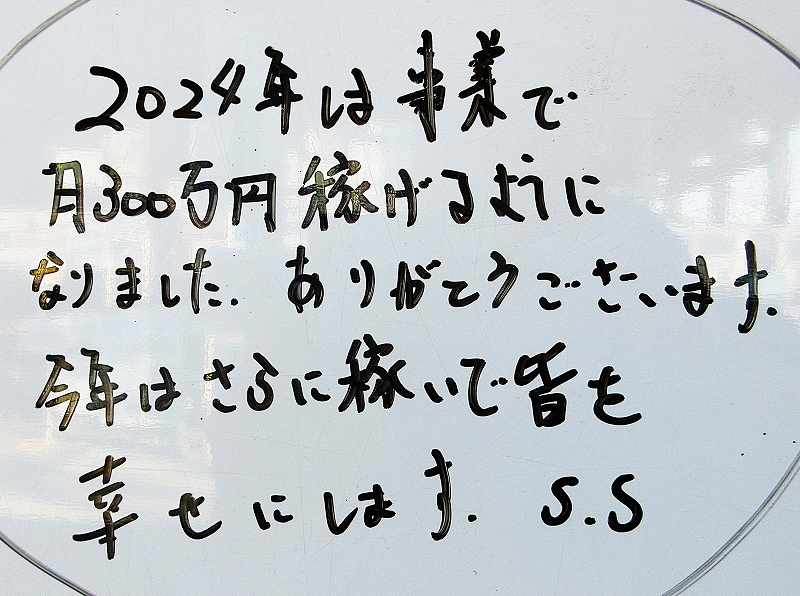 2024年は事業で
月300万円稼げるように
なりました. ありがとうございます.
今年はさらに稼いで皆を
幸せにします. S.S